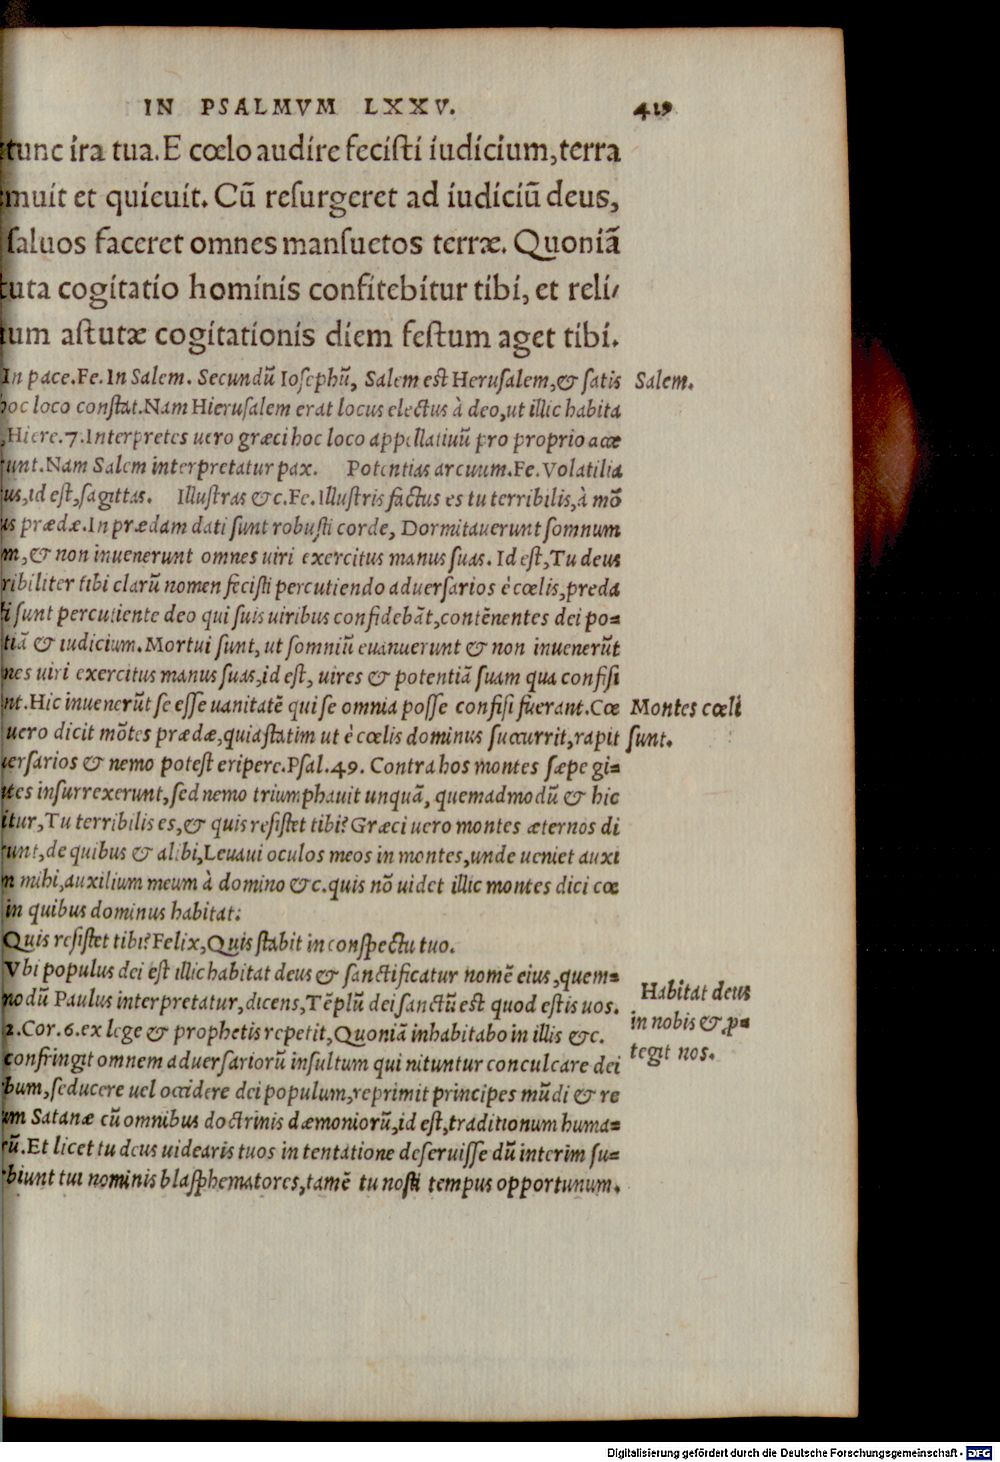 IN PSALMVM LXXV. 419
tunc ira tua. E cœlo audire fecisti iudicium, terra
muit et quieuit. Cū resurgeret ad iudiciū deus,
saluos faceret omnes mansuetos terræ. Quoniā
cogitatio hominis confitebitur tibi, et reli/
astutæ cogitationis diem festum aget tibi.
In pace. Fe. In Salem. Secundū Iosephū, Salem est Herusalem, & satis
Salem.
hoc loco constat. Nam Hierusalem erat locus electus à deo, ut illic habita
, Hiere. 7. Interpretes uero græci hoc loco appellatiuū pro proprio acce
runt. Nam Salem interpretatur pax. Potentias arcuum. Fe. Volatilia
us, id est, sagittas. Illustras &c. Fe. Illustris factus es tu terribilis, à mō
us prædæ. In prædam dati sunt robusti corde, Dormitauerunt somnum
m, & non inuenerunt omnes uiri exercitus manus suas. Id est, Tu deus
ribiliter tibi clarū nomen fecisti percutiendo aduersarios è cœlis, preda
ti sunt percutiente deo qui suis uiribus confidebāt, contēnentes dei po=
tiā & iudicium. Mortui sunt, ut somniū euanuerunt & non inuenerūt
nes uiri exercitus manus suas, id est, uires & potentiā suam qua confisi
nt. Hic inuenerūt se esse uanitatē qui se omnia posse confisi fuerant. Cœ
Montes cœli
sunt.
uero dicit mōtes prædæ, quia statim ut è cœlis dominus succurrit, rapit
uersarios & nemo potest eripere. Psal. 49. Contra hos montes sæpe gi=
ntes insurrexerunt, sed nemo triumphauit unquā, quemadmodū & hic
itur, Tu terribilis es, & quis resistet tibi? Græci uero montes æternos di
runt, de quibus & alibi, Leuaui oculos meos in montes, unde ueniet auxi
m mihi, auxilium meum à domino &c. quis nō uidet illic montes dici cœ
in quibus dominus habitat:
Quis resistet tibi? Felix, Quis stabit in conspectu tuo.
Vbi populus dei est illic habitat deus & sanctificatur nomē eius, quem=
modū Paulus interpretatur, dicens, Tēplū dei sanctū est quod estis uos.
Habitat deus
in nobis & p=
tegit nos.
2. Cor. 6. ex lege & prophetis repetit, Quoniā inhabitabo in illis &c.
confringit omnem aduersariorū insultum qui nituntur conculcare dei
bum, seducere uel occidere dei populum, reprimit principes mūdi & re
um Satanæ cū omnibus doctrinis dæmoniorū, id est, traditionum huma=
rū. Et licet tu deus uidearis tuos in tentatione deseruisse dū interim su=
biunt tui nominis blasphematores, tamē tu nosti tempus opportunum.
Digitalisierung gefördert durch die Deutsche Forschungsgemeinschaft - DFG